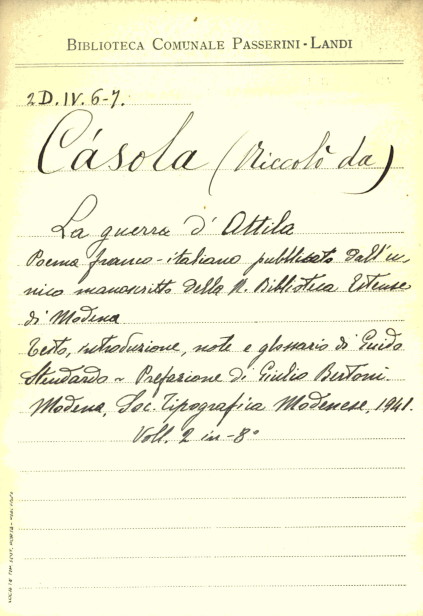 BIBLIOTECA COMUNALE PASSERINI-LANDI
2D.IV.6-7.
Cásola (Niccolò da)
La guerra d'Attila
Poema franco-italiano pubblicato dall'u-
nico manoscritto della R. Biblioteca Estense
di Modena
Testo, introduzione, note e glossario di Guido
Stendardo - Prefazione di Giulio Bertoni.
Modena, Soc. Tipografica Modenese, 1941.
Voll. 2 in-8°